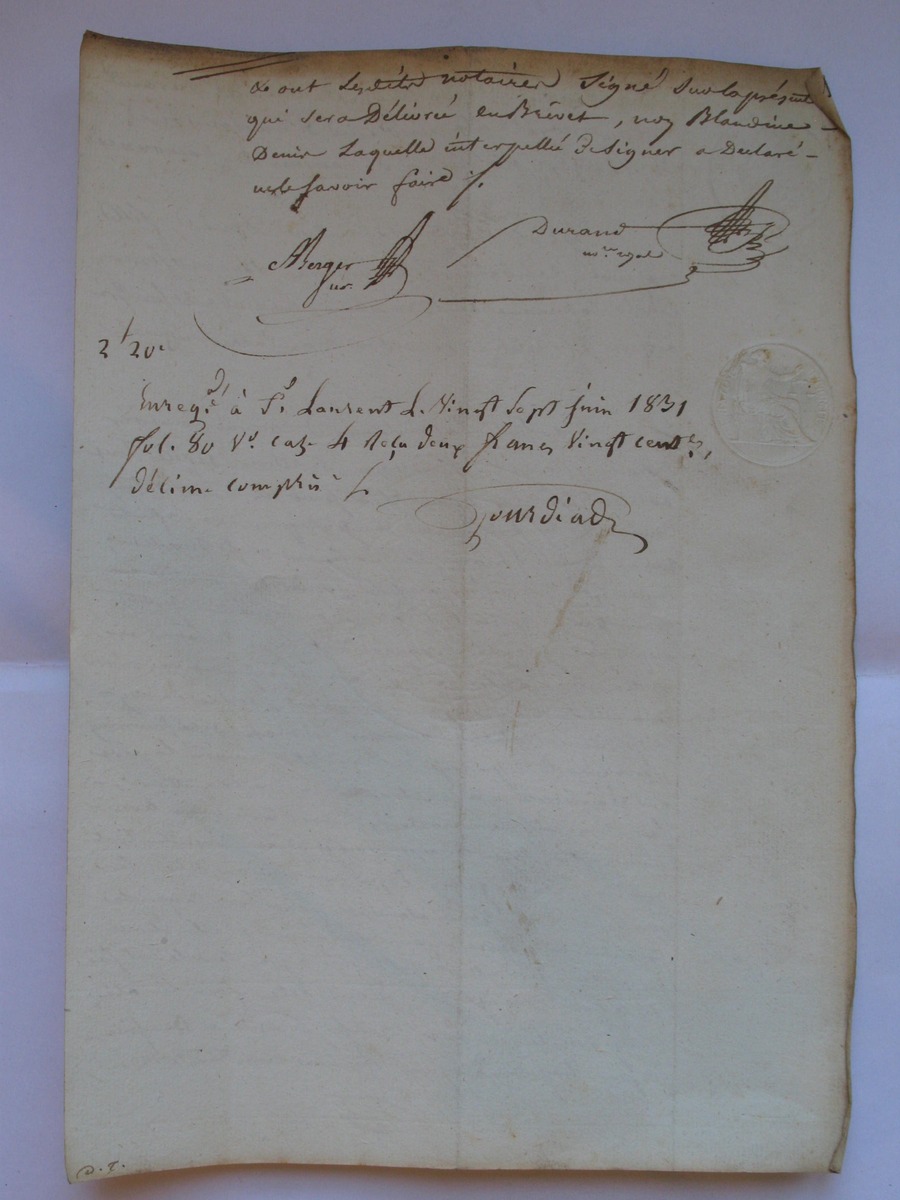 & ont lesdits notaires signé sur la présente
qui sera délivrée en Brévet, non Blandine
Denis laquelle interpellée de signer a déclaré
ne le savoir faire ./.
Durand
nore royal
ABerger
nre
2f 20c
Enregé à St Laurent le vingt sept juin 1831
fol. 80 Vo case 4 Reçu deux francs vingt centes,
décime compris